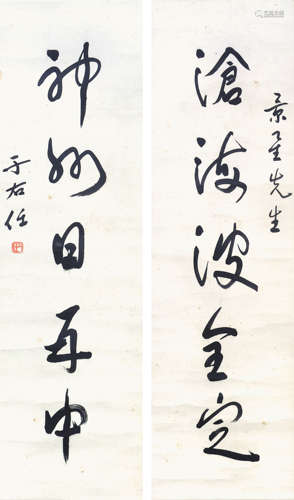 滄海波全定
景星先生
神州日再中
于右任